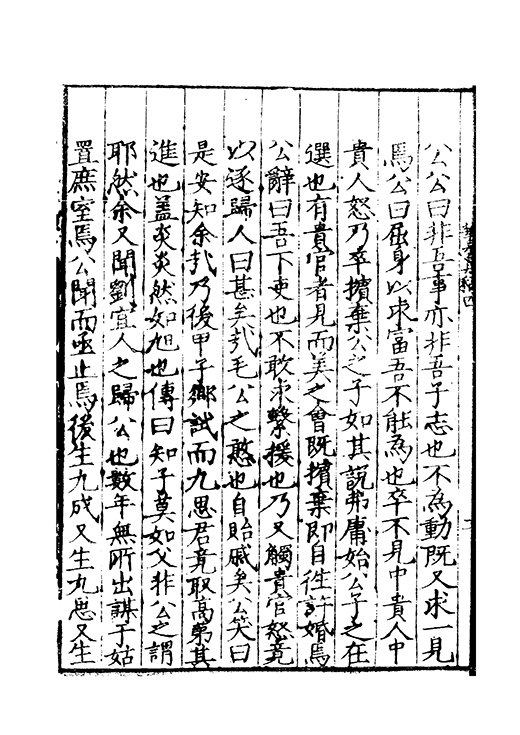 公公曰非吾事亦非吾子志也不為動既又求一見
焉公曰屈身以求富吾不能為也卒不見中貴人中
貴人怒乃卒擯棄公之子如其說弗庸始公子之在
選也有貴官者見而美之會既擯棄即自往許婚焉
公辭曰吾下吏也不敢求繫援也乃又觸貴官怒竟
以逐歸人曰甚矣㢤毛公之憨也自貽戚矣公笑曰
是安知余㢤乃後甲子鄉試而九思君竟取高第其
進也蓋炎炎然如旭也傳曰知子莫如父非公之謂
耶然余又聞劉宜人之歸公也數年無所出謀于姑
置庶室焉公聞而亟止焉後生九成又生九思又生